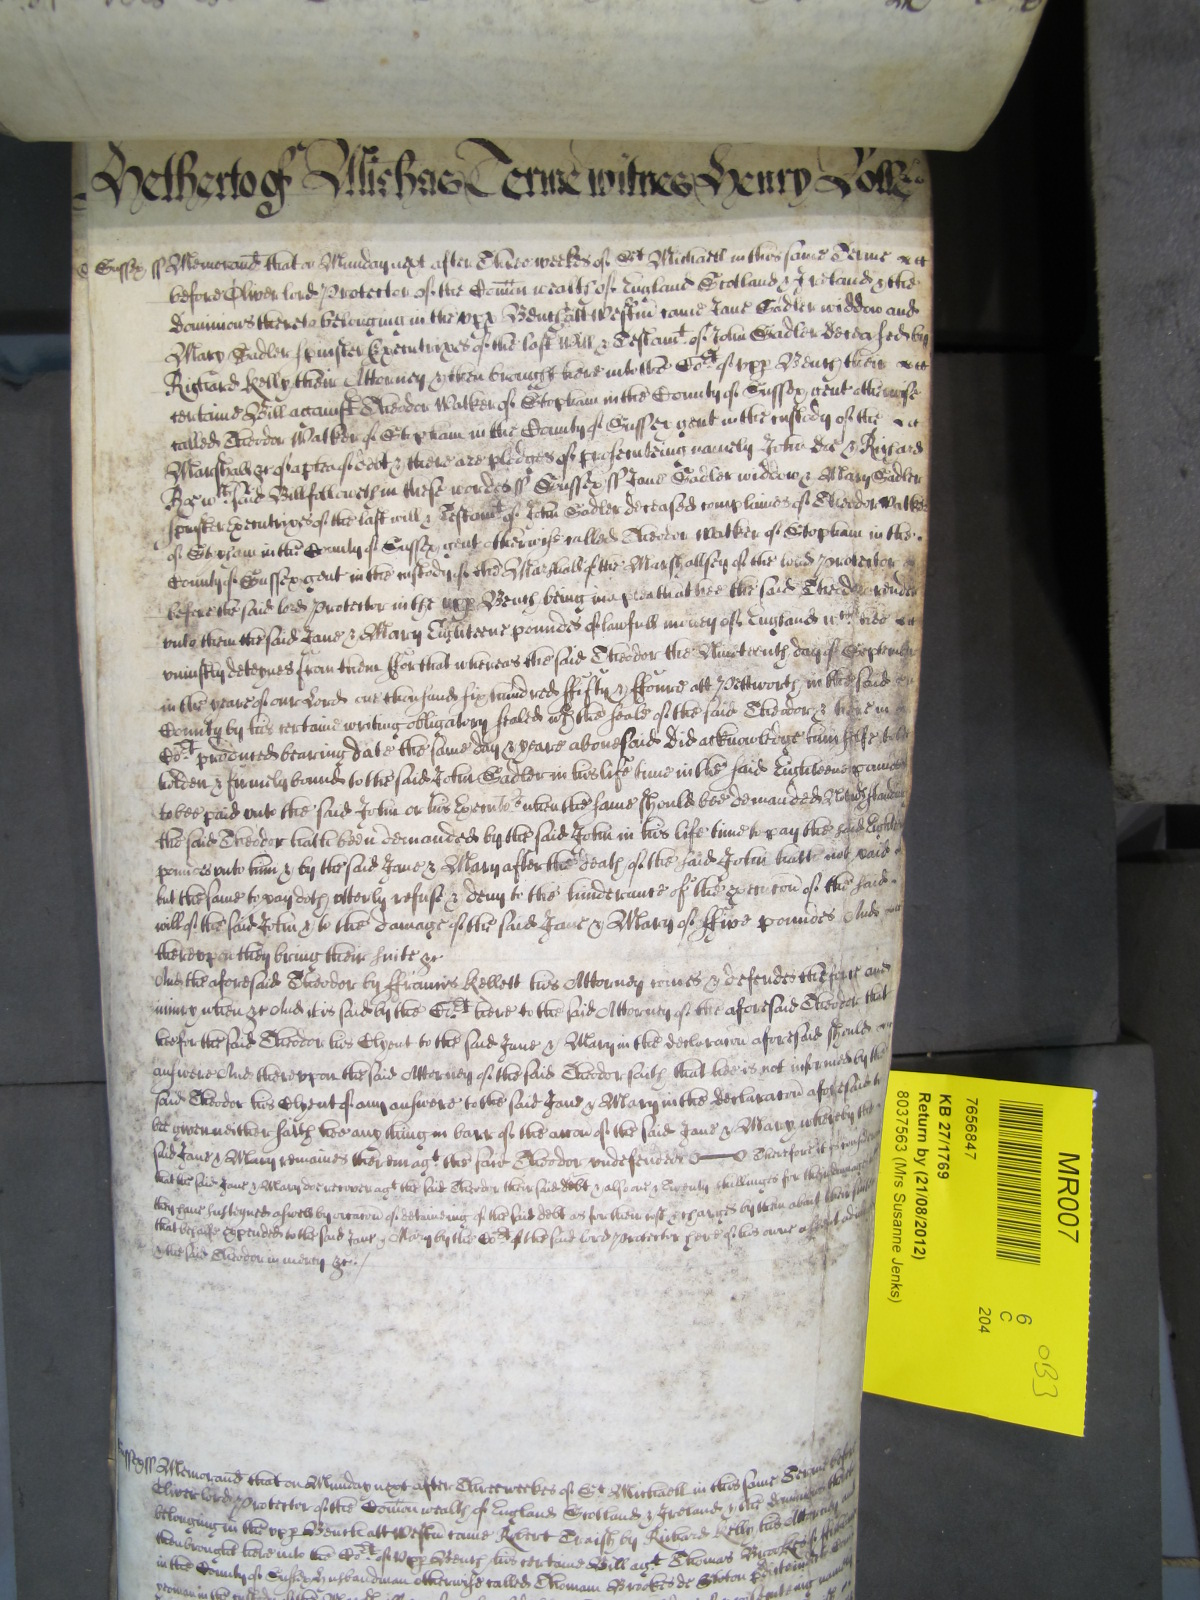 Hetherto of Michas Terme witnes Henry Rolle
Sussex ss Memorand that on Munday next after Three weekes of St Michaell in this same Terme
before Oliver lord Protector of the Comon wealth of England Scotland & Ireland & the
dominions thereto belonging in the upp Bench att Westm came Jane Sadler widdow and
Mary Sadler spinster Executrixes of the last will & Testamt of John Sadler deceased by
Richard Kelly their Attorney & then brought here into the Cort of upp Bench their
certaine Bill against Theodor Walker of Stopham in the County of Sussex gent otherwise
called Theodor Walker of Stopham in the County of Sussex gent in the custody of the
Marshall &c of a plea of debt & there are pledges of prosecuteing namely John Doe & Richard
Roe wch said Bill followeth in these wordes ss Sussex ss Jane Sadler widdow & Mary Sadler
spinster Executrixes of the last will & Testamt of John Sadler deceased complaines of Theodor Walker
of Stopham in the County of Sussex gent otherwise called Theodor Walker of Stopham in the
County of Sussex gent in the custody of the Marshall of the Marshallsey of the lord Protector
before the said lord Protector in the upp Bench being in a plea that hee the said Theodor render
unto them the said Jane & Mary Eighteene poundes of lawfull money of England wch hee
uniustly deteynes from them ffor that whereas the said Theodor the Nineteenth day of September
in the yeare of our Lord one thousand six hundred ffifty & ffoure att Pettworth in the said
County by his certaine writing obligatory sealed wth the seale of the said Theodor & here in
Cort produced bearing date the same day & yeare abovesaid did acknowledge himselfe to be
holden & firmely bound to the said John Sadler in his life time in the said Eighteene poundes
to bee paid unto the said John or his Executors when the same should bee demanded
the said Theodor hath been demanded by the said John in his life time to pay the said Eighteene
poundes unto him & by the said Jane & Mary after the death of the said John hath not paid
but the same to pay doth utterly refuse & deny to the hinderance of the execucon of the said
will of the said John & to the damage of the said Jane & Mary of ffive poundes And
thereupon they bring their suite &c
And the aforesaid Theodor by ffrancis Kellett his Attorney comes & defendes the force and
iniury when &c And it is said by the Cort here to the said Attorney of the aforesaid Theodor that
hee for the said Theodor his Clyent to the said Jane & Mary in the declaracon aforesaid should
answere And thereupon the said Attorney of the said Theodor saith that hee is not informed by the
said Theodor his Clyent of any answere to the said Jane & Mary in the declaracon aforesaid to
bee given neither saith hee any thing in barr of the accon of the said Jane & Mary whereby the
said Jane & Mary remaines therein agt the said Theodor undefended Therefore it is considered
that the said Jane & Mary doe recover agt the said Theodor their said debt & alsoe Twenty shillinges for their damages
they have susteyned aswell by occacon of deteineing of the said debt as for their cost & charges by them about their suite
that behalfe expended to the said Jane & Mary by the Cort of the said lord Protector here of his owne assent
& the said Theodor in mercy &c
Sussex ss Memorand that on Munday next after Three weekes of St Michaell in this same Terme before
Oliver lord Protector of the Comon wealth of England Scotland & Ireland & the dominions thereto
belonging in the upp Bench att Westm came Robert Traish by Richard Kelly his Attorney and
then brought here into the Cort of upp Bench his certaine Bill agt Thomas Brookes of
in the County of Sussex husbandman otherwise called Thomam Brookes de
yeoman in the custody of the
MR007
6
C
204
083
7656847
KB 27/1769
Return by (21/08/2012)
8037563 (Mrs Susanne Jenks)